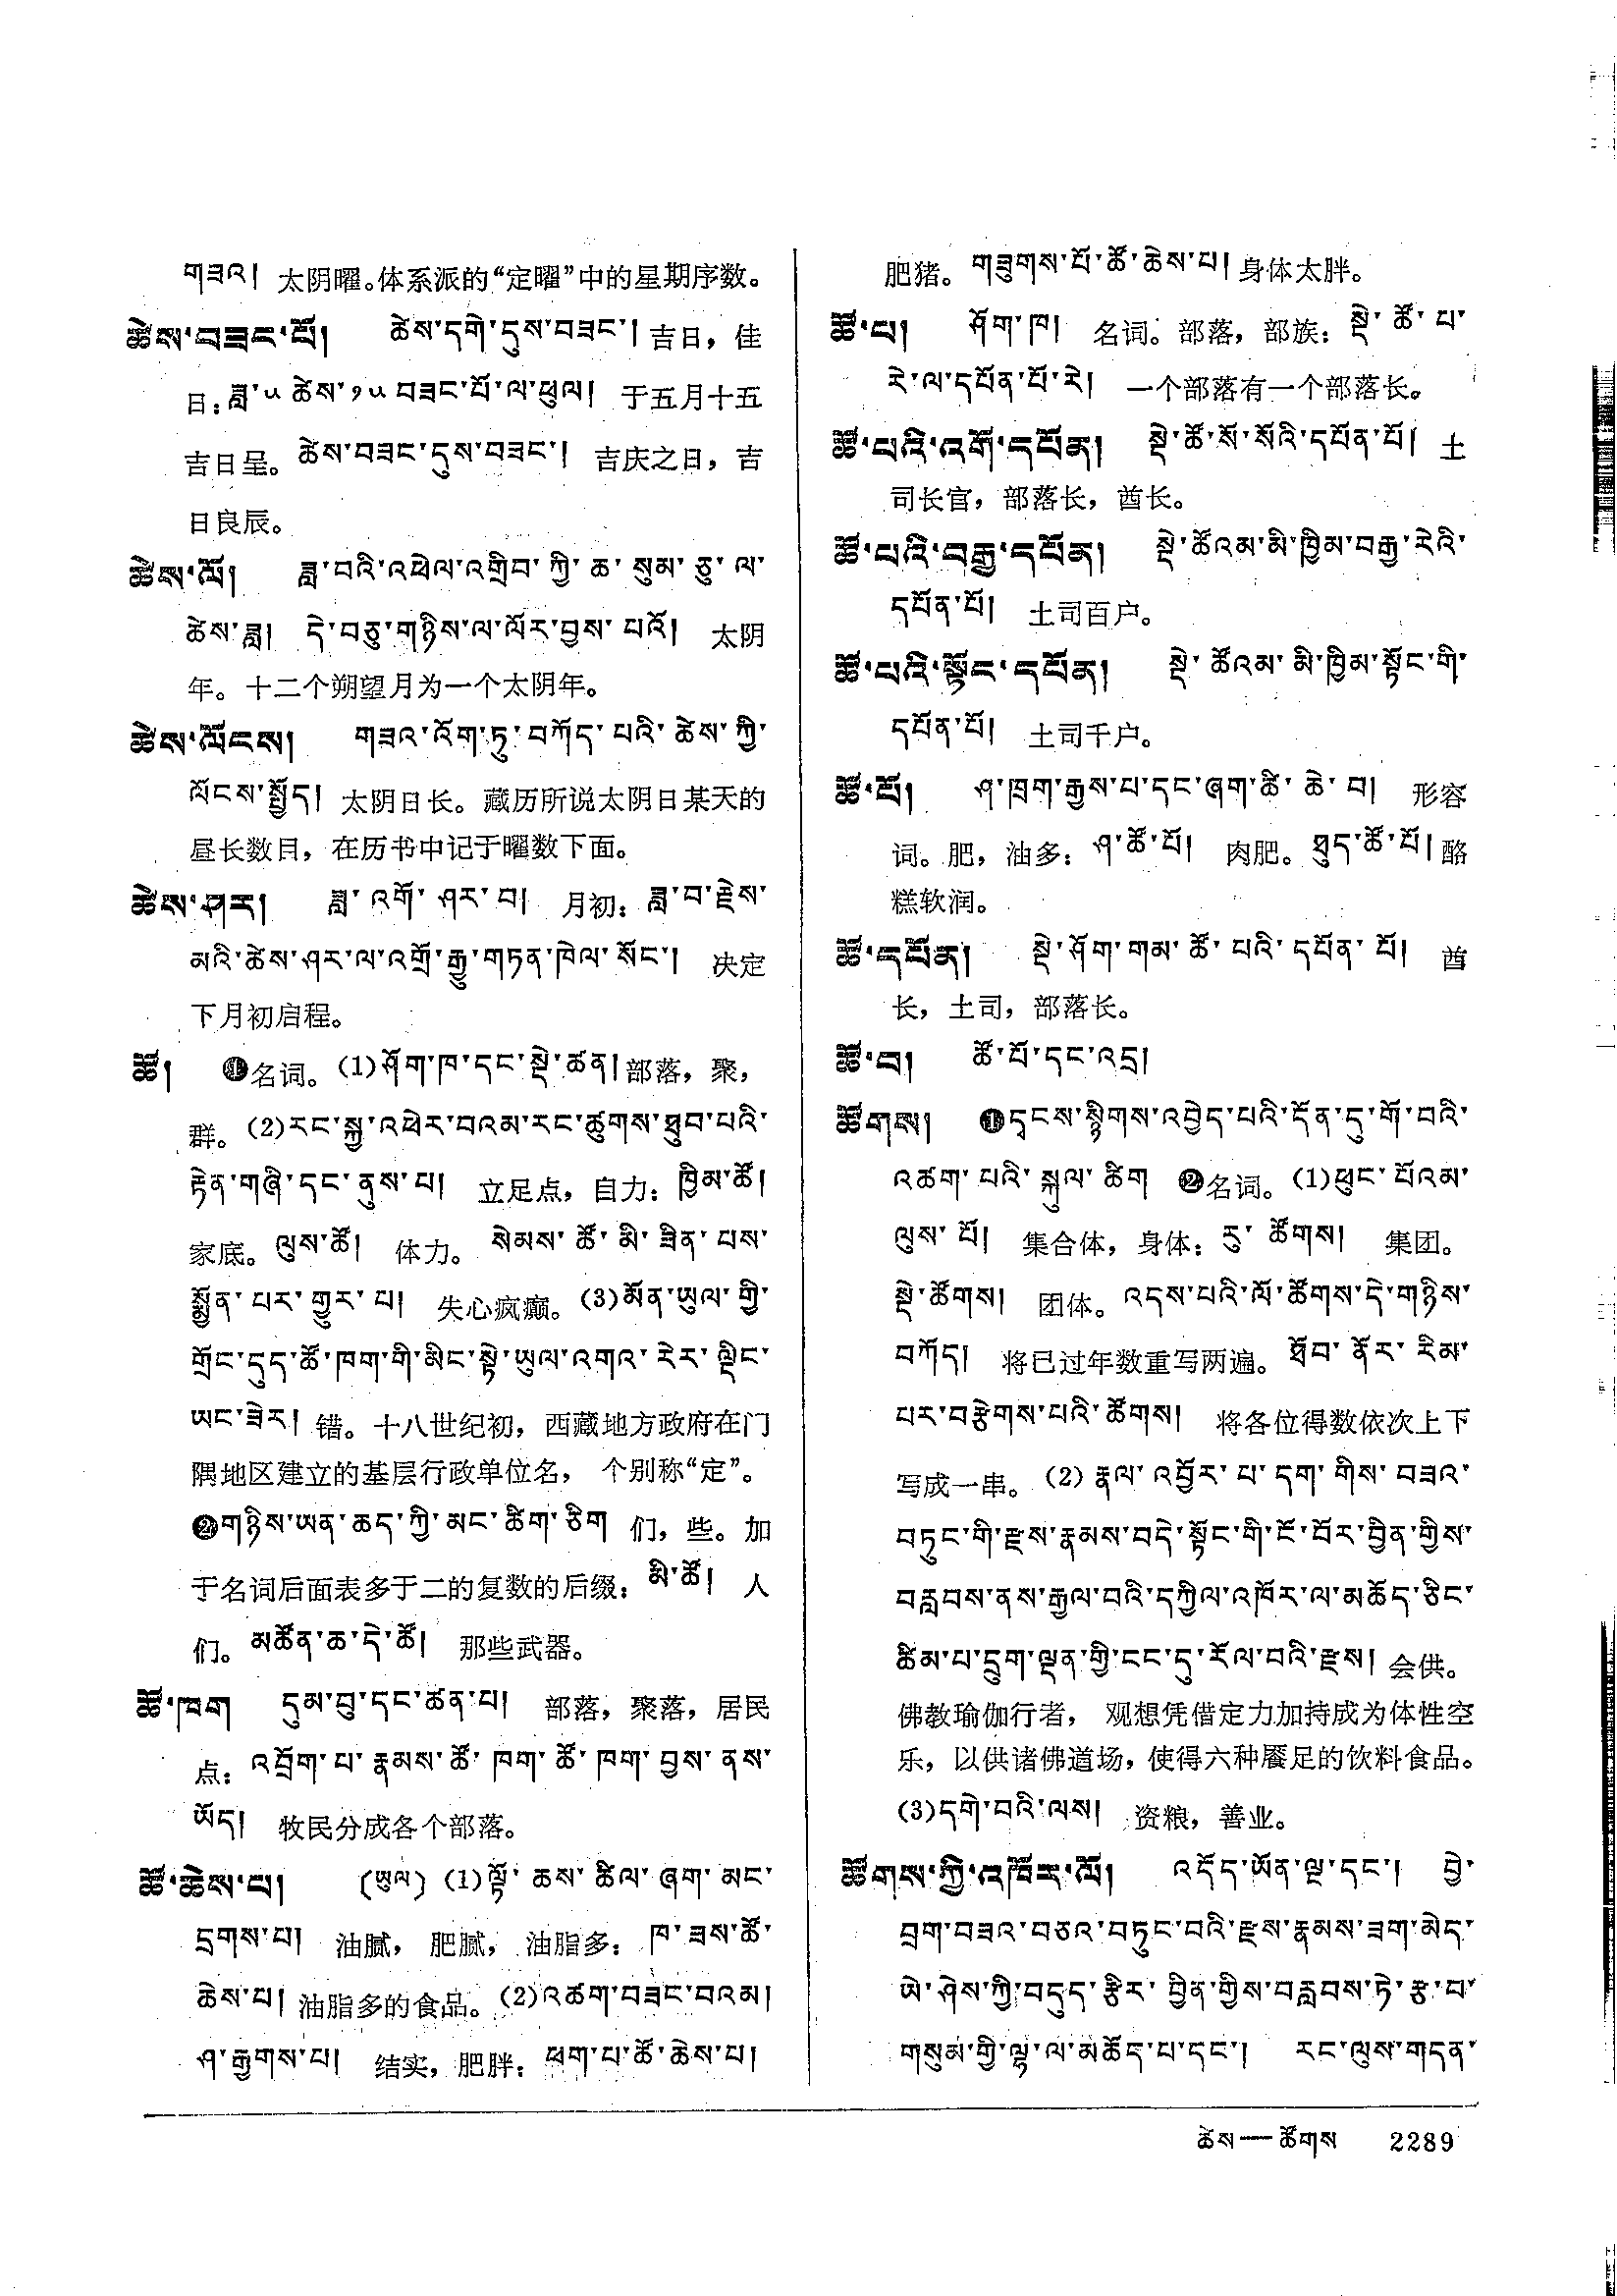 གཟའ། 太阴曜。体系派的“定曜”中的星期序数。
ཚེས་བཟང་པོ། ཚེས་དགེ་དུས་བཟང་། 吉日，佳
日：ཟླ་༥ ཚེས་༡༥ བཟང་པོ་ལ་ཕུལ། 于五月十五
吉日呈。ཚེས་བཟང་དུས་བཟང་། 吉庆之日，吉
日良辰。
ཚེས་ལོ། ཟླ་བའི་འཕེལ་འགྲིབ་ཀྱི་ཆ་སུམ་ཅུ་ལ་
ཚེས་ཟླ། དེ་བཅུ་གཉིས་ལ་ལོར་བྱས་པའོ། 太阴
年。十二个朔望月为一个太阴年。
ཚེས་ལོངས། གཟའ་འོག་ཏུ་བཀོད་པའི་ཚེས་ཀྱི་
ལོངས་སྤྱོད། 太阴日长。藏历所说太阴日某天的
昼长数目，在历书中记于曜数下面。
ཚེས་ཤར། ཟླ་འགོ་ཤར་བ། 月初：ཟླ་བ་རྗེས་
མའི་ཚེས་ཤར་ལ་འགྲོ་རྒྱུ་གཏན་ཁེལ་སོང་། 决定
下月初启程。
ཚོ། ❶名词。(1)ཤོག་ཁ་དང་སྡེ་ཚན། 部落，聚，
群。(2)རང་སྐྱ་འཕེར་བའམ་རང་ཚུགས་ཐུབ་པའི་
རྟེན་གཞི་དང་ནུས་པ། 立足点，自力：ཁྱིམ་ཚོ།
家底。ལུས་ཚོ། 体力。སེམས་ཚོ་མི་ཟིན་པས་
སྨྱོན་པར་གྱུར་པ། 失心疯癫。(3)མོན་ཡུལ་གྱི་
གྲོང་དུད་ཚོ་ཁག་གི་མིང་སྟེ་ཡུལ་འགའ་རེར་ལྡིང་
ཡང་ཟེར། 错。十八世纪初，西藏地方政府在门
隅地区建立的基层行政单位名，个别称“定”。
❷གཉིས་ཡན་ཆད་ཀྱི་མང་ཚིག་ཅིག 们，些。加
于名词后面表多于二的复数的后缀：མི་ཚོ། 人
们。མཚོན་ཆ་དེ་ཚོ། 那些武器。
ཚོ་ཁག དུམ་བུ་དང་ཚན་པ། 部落，聚落，居民
点：འབྲོག་པ་རྣམས་ཚོ་ཁག་ཚོ་ཁག་བྱས་ནས་
ཡོད། 牧民分成各个部落。
ཚོ་ཆེས་པ། (ཡུལ) (1)ལྟོ་ཆས་ཚིལ་ཞག་མང་
དྲགས་པ། 油腻，肥腻，油脂多：ཁ་ཟས་ཚོ་
ཆེས་པ། 油脂多的食品。(2)འཚག་བཟང་བའམ།
ཤ་རྒྱགས་པ། 结实，肥胖：ཕག་པ་ཚོ་ཆེས་པ།
肥猪。གཟུགས་པོ་ཚོ་ཆེས་པ། 身体太胖。
ཚོ་པ། ཤོག་ཁ། 名词。部落，部族：སྡེ་ཚོ་པ་
རེ་ལ་དཔོན་པོ་རེ། 一个部落有一个部落长。
ཚོ་པའི་འགོ་དཔོན། སྡེ་ཚོ་སོ་སོའི་དཔོན་པོ། 土
司长官，部落长，酋长。
ཚོ་པའི་བརྒྱ་དཔོན། སྡེ་ཚོའམ་མི་ཁྱིམ་བརྒྱ་རེའི་
དཔོན་པོ། 土司百户。
ཚོ་པའི་སྟོང་དཔོན། སྡེ་ཚོའམ་མི་ཁྱིམ་སྟོང་གི་
དཔོན་པོ། 土司千户。
ཚོ་པོ། ཤ་ཁྲག་རྒྱས་པ་དང་ཞག་ཚི་ཆེ་བ། 形容
词。肥，油多：ཤ་ཚོ་པོ། 肉肥。ཐུད་ཚོ་པོ། 酪
糕软润。
ཚོ་དཔོན། སྡེ་ཤོག་གམ་ཚོ་པའི་དཔོན་པོ། 酋
长，土司，部落长。
ཚོ་བ། ཚོ་པོ་དང་འདྲ།
ཚོགས། ❶དྭངས་སྙིགས་འབྱེད་པའི་དོན་དུ་གོ་བའི་
འཚག་པའི་སྐུལ་ཚིག ❷名词。(1)ཕུང་པོའམ་
ལུས་པོ། 集合体，身体：རུ་ཚོགས། 集团。
སྡེ་ཚོགས། 团体。འདས་པའི་ལོ་ཚོགས་དེ་གཉིས་
བཀོད། 将已过年数重写两遍。ཐོབ་ནོར་རིམ་
པར་བརྩེགས་པའི་ཚོགས། 将各位得数依次上下
写成一串。(2) རྣལ་འབྱོར་པ་དག་གིས་བཟའ་
བཏུང་གི་རྫས་རྣམས་བདེ་སྟོང་གི་ངོ་བོར་བྱིན་གྱིས་
བརླབས་ནས་རྒྱལ་བའི་དཀྱིལ་འཁོར་ལ་མཆོད་ཅིང་
ཚིམ་པ་དྲུག་ལྡན་གྱི་ངང་དུ་རོལ་བའི་རྫས། 会供。
佛教瑜伽行者，观想凭借定力加持成为体性空
乐，以供诸佛道场，使得六种餍足的饮料食品。
(3)དགེ་བའི་ལས། 资粮，善业。
ཚོགས་ཀྱི་འཁོར་ལོ། འདོད་ཡོན་ལྔ་དང་། བྱེ་
བྲག་བཟའ་བཅའ་བཏུང་བའི་རྫས་རྣམས་ཟག་མེད་
ཡེ་ཤེས་ཀྱི་བདུད་རྩིར་བྱིན་གྱིས་བརླབས་ཏེ་རྩ་བ་
གསུམ་གྱི་ལྷ་ལ་མཆོད་པ་དང་། རང་ལུས་གདན་
ཚེས—ཚོགས 2289